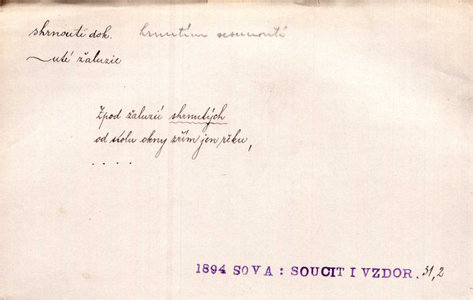 shrnouti dok. hrnutím sesunouti
~uté žaluzie
Zpod žaluzií shrnutých
od stolu okny zřím jen řeku,
. . . .
1894 SOVA: SOUCIT I VZDOR. 31,2